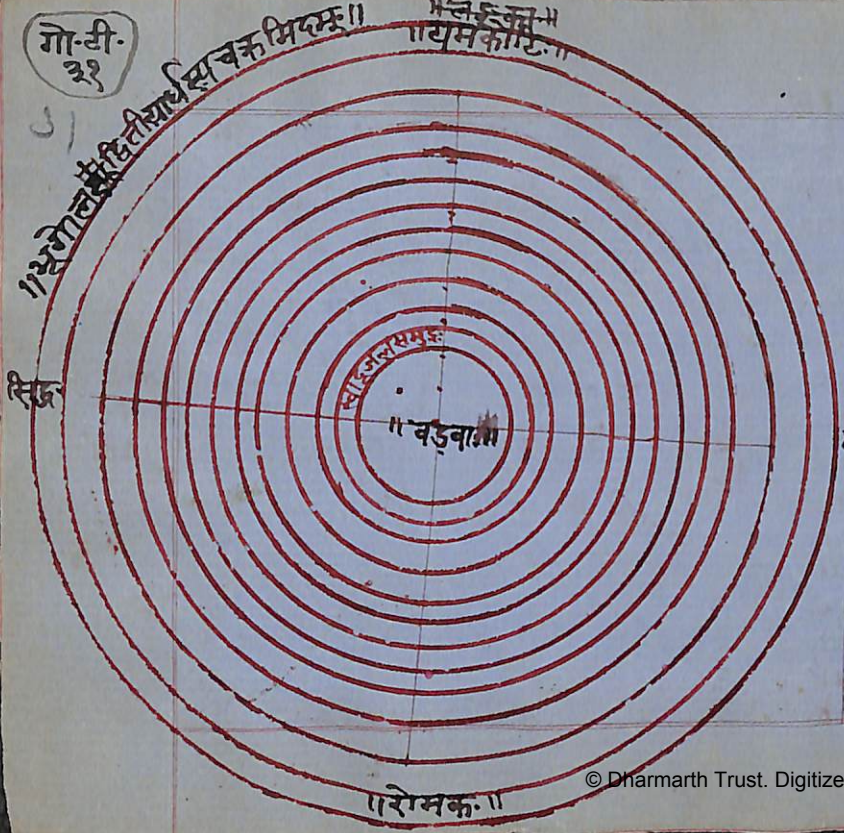 गो·टी·
३१
॥भूगोल द्वितीयार्धस्य चक्रमिदम्॥
॥यमकोटिः॥
सिद्ध
स्वादुजलसमुद्रः
॥वड्वा॥
॥रोमकः॥
© Dharmarth Trust. Digitize